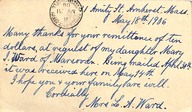 21 Amity St. Amherst. Mass.
May 15th 1906
Many thanks for your remittance of ten
dollars, at request of my daughter Mary
S. Ward of Marsovan. Being mailed Apr.
it was received here on May 14th
I hope you & your family are well.
Cordially
Mrs. L. A. Ward.